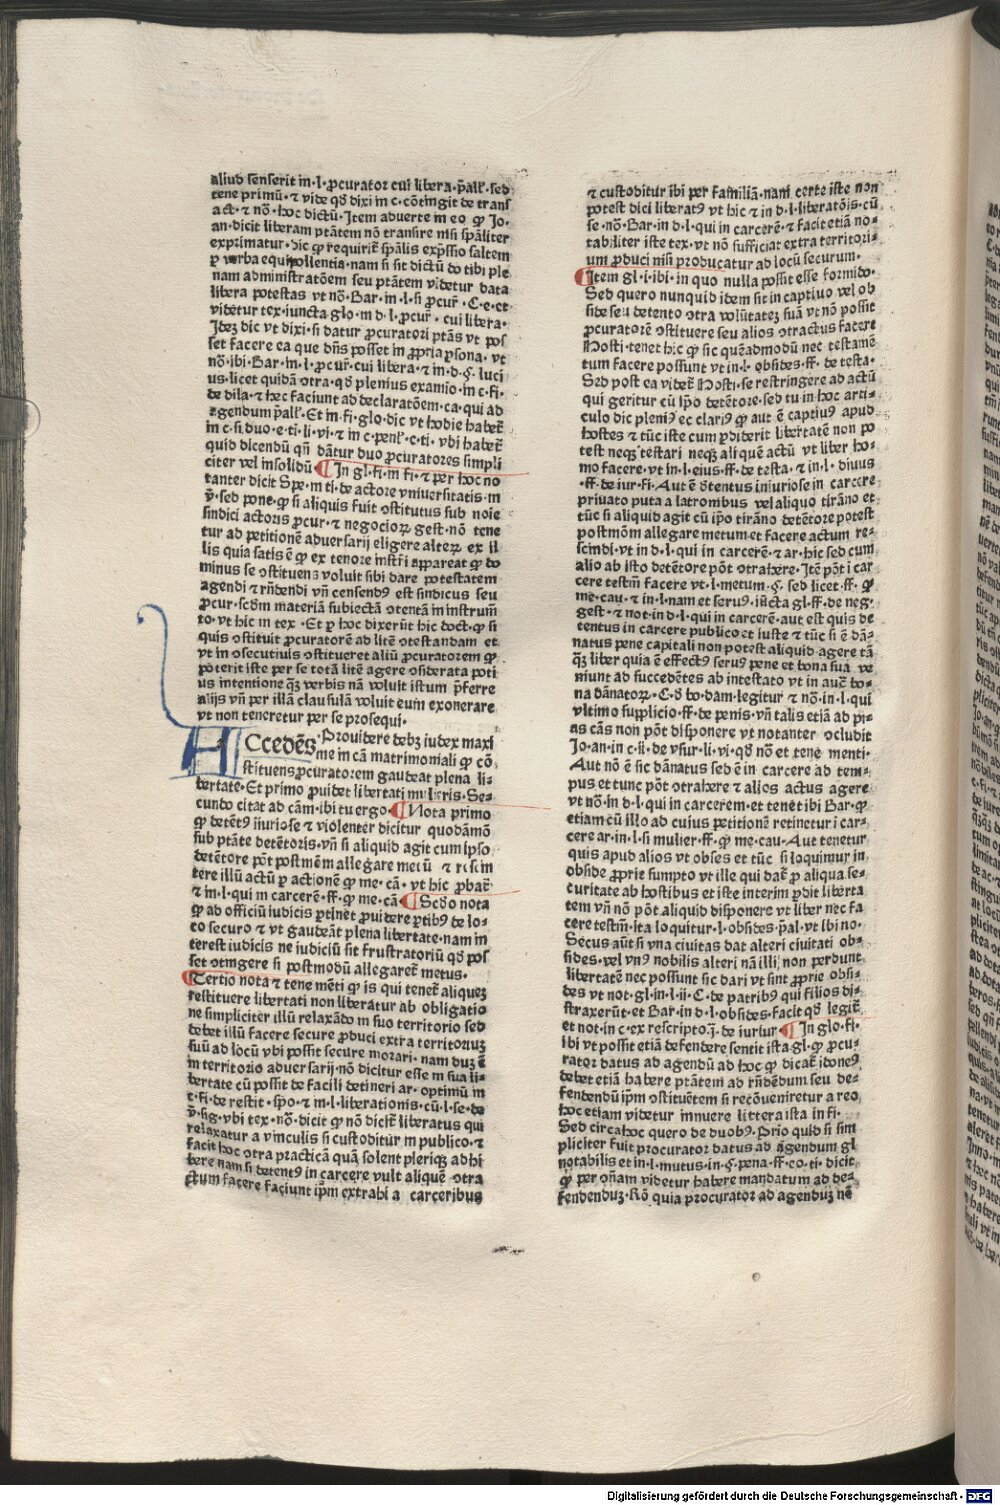 aliud senserit in·l·ꝓcurator cui libera·p̄all·sed
tene primū·⁊ vide qd̄ dixi in c·cōtingit de transͣ
act·⁊ nō·hoc dictū·Item aduerte in eo ꝙ Jo·
an·dicit liberam ptātem nō transire nisi sp̄aliter
exprimatur·dic ꝙ requirit̄ sp̄alis exp̄ssio saltem
ꝑ verba equipollentia·nam si sit dictū do tibi ple
nam administratōem seu ptātem videtur data
libera potestas vt nō·Bar·in·l·si ꝓcur̄·C·e·et
videtur tex·iuncta glo·in d·l·ꝓcur̄·cui libera·
Idez dic vt dixi·si datur ꝓcuratori ptās vt pos
set facere ea que dn̄s posset in ꝓpria ꝑsona·vt
nō·ibi·Bar·in·l·ꝓcur̄·cui libera·⁊ in·d·§·luci
us·licet quidā ↄtra·qd̄ plenius examio·in c·fi·
de dila·⁊ hec faciunt ad declaratōem·ca·qui ad
agendum p̄all·Et in·fi·glo·dic vt hodie habet̄
in c·si duo·e·ti·li·vi·⁊ in c·penl̄·e·ti·vbi habet̄
quid dicendū qn̄ dātur duo ꝓcuratores simpli
citer vel insolidū ¶In gl·fi·in fi·⁊ per hoc no
tanter dicit Spe·in ti·de actore vniuersitatis·in
v̄·sed pone·ꝙ si aliquis fuit ↄstitutus sub noīe
sindici actoris ꝓcur·⁊ negocioꝝ gest·nō tene
tur ad petitionē aduersarij eligere alteꝝ ex il
lis quia satis ē ꝙ ex tenore instr̄i appareat ꝙ do
minus se ↄstituens voluit sibi dare potestatem
agendi ⁊ rn̄dendi vn̄ censendꝰ est sindicus seu
ꝓcur·scd̄m materiā subiectā ↄtentā in instrum̄
to·vt hic in tex·Et ꝑ hoc dixerūt hic doct·ꝙ si
quis ↄstituit ꝓcuratorē ad litē ↄtestandam et
vt in ↄsecutiuis ↄstitueret aliū ꝓcuratorem ꝙ
poterit iste per se totā litē agere ↄsiderata poti
us intentione qꝫ verbis nā voluit istum p̄ferre
alijs vn̄ per illā clausulā voluit eum exonerare
vt non teneretur per se prosequi·
ACcedēs·Prouidere debꝫ iudex maxi
me in cā matrimoniali ꝙ cō
stituens ꝓcuratorem gaudeat plena li⸗
bertate·Et primo ꝓuidet libertati mulieris·Se⸗
cundo citat ad cām·ibi tu ergo·¶Nota primo
ꝙ detētꝰ iiuriose ⁊ violenter dicitur quodāmō
sub ptāte detētoris·vn̄ si aliquid agit cum ipso
detētore pōt postmēm allegare metū ⁊ rescin
tere illū actū ꝑ actionē ꝙ me·cā·vt hic ꝓbat̄·
⁊ in·l·qui in carcerē·ff·ꝙ me·cā¶Scd̄o nota
ꝙ ad officiū iudicis ꝑtinet ꝓuidere ꝑtibꝰ de lo⸗
co securo ⁊ vt gaudeāt plena libertate·nam in
terest iudicis ne iudiciū sit frustratoriū qd̄ pos
set ↄtingere si postmodū allegaret̄ metus·
¶Tertio nota ⁊ tene mēti ꝙ is qui tenet̄ aliquez
restituere libertati non liberatur ab obligatio
ne simpliciter illū relaxādo in suo territorio sed
debet illū facere secure ꝓduci extra territoriuꝫ
suū ad locū vbi possit secure morari·nam duꝫ ē
in territorio aduersarij·nō dicitur esse in sua li⸗
bertate cū possit de facili detineri ar·optimū in
c·fi·de restit·spo·⁊ in·l·liberationis·cū·l·se·de
v̄·sig·vbi tex·nō·dicit ꝙ nō dicit̄ liberatus qui
relaxatur a vinculis si custoditur in publico·⁊
facit hoc ↄtra practicā quā solent pleriqꝫ adhi
bere nam si detentꝰ in carcere vult aliquē ↄtra
ctum facere faciunt ip̄m extrahi a carceribus
⁊ custoditur ibi per familiā·nam certe iste non
potest dici liberatꝰ vt hic ⁊ in d·l·liberatōis·cū
se·nō·Bar·in d·l·qui in carcerē·⁊ facit etiā no⸗
tabiliter iste tex·vt nō sufficiat extra territori⸗
um ꝓduci nisi producatur ad locū securum·
¶Item gl·i·ibi·in quo nulla possit esse formido·
Sed quero nunquid idem sit in captiuo vel ob
side seu detento ↄtra volūtateꝫ suā vt nō possit
ꝓcuratorē ↄstituere seu alios ↄtractus facere
Hosti·tenet hic ꝙ sic quēadmodū nec testamē
tum facere possunt vt in·l·obsides·ff·de testa·
Sed post ea videt̄ Hosti·se restringere ad actū
qui geritur cū ip̄o detētore·sed tu in hoc arti⸗
culo dic pleniꝰ ec clariꝰ ꝙ aut ē captiuꝰ apud
hostes ⁊ tūc iste cum ꝑdiderit libertatē non po
test neqꝫ testari neqꝫ aliquē actū vt liber ho⸗
mo facere·vt in·l·eius·ff·de testa·⁊ in·l·diuus
·ff·de iur·fi·Aut ē detentus iniuriose in carcere
priuato puta a latronibus vel aliquo tirāno et
tūc si aliquid agit cū ip̄o tirāno detētore potest
postmōm allegare metum et facere actum re⸗
scindi·vt in d·l·qui in carcerē·⁊ ar·hic sed cum
alio ab isto detētore pōt ↄtrahere·Itē pōt i car
cere testm̄ facere vt·l·metum·§·sed licet·ff·ꝙ
me·cau·⁊ in·l·nam et seruꝰ·iūcta gl·ff·de neg·
gest·⁊ not·in d·l·qui in carcerē·aut est quis de
tentus in carcere publico et iuste ⁊ tūc si ē dā⸗
natus pene capitali non potest aliquid agere tā
qꝫ liber quia ē effectꝰ seruꝰ pene et bona sua ve
niunt ad succedētes ab intestato vt in auc̄ bo⸗
na dānatoꝝ·C·d̄ bo·dam·legitur ⁊ nō·in·l·qui
vltimo supplicio·ff·de penis·vn̄ talis etiā ad pi⸗
as cās non pōt disponere vt notanter ↄcludit
Jo·an·in c·ii·de vsur·li·vi·qd̄ nō et tene menti·
Aut nō ē sic dānatus sed ē in carcere ad tem⸗
pus et tunc pōt ↄtrahere ⁊ alios actus agere
vt nō·in d·l·qui in carcerem·et tenet ibi Bar·ꝙ
etiam cū illo ad cuius petitionē retinetur i car⸗
cere ar·in·l·si mulier·ff·ꝙ me·cau·Aut tenetur
quis apud alios vt obses et tūc si loquimur in
obside ꝓprie sumpto vt ille qui dat̄ ꝓ aliqua se⸗
curitate ab hostibus et iste interim ꝑdit liberta
tem vn̄ nō pōt aliquid disponere vt liber nec fa
cere testm̄·ita loquitur·l·obsides·p̄al·vt ibi no·
Secus aut̄ si vna ciuitas dat alteri ciuitati ob⸗
sides·vel vnꝰ nobilis alteri nā illi non perdunt
libertatē nec possunt sic dari vt sint ꝓprie obsi⸗
des vt not·gl·in·l·ii·C·de patribꝰ qui filios di⸗
straxerūt·et Bar·in d·l·obsides·facit qd̄ legit̄
et not·in c·ex rescripto·j̄·de iureiur ¶In glo·fi·
ibi vt possit etiā defendere sentit ista gl·ꝙ ꝓcu⸗
rator datus ad agendū ad hoc ꝙ dicat̄ idoneꝰ
debet etiā habere ptātem ad rn̄dēdum seu de⸗
fendendū ip̄m ↄstituētem si recōueniretur a reo
hoc etiam videtur innuere littera ista in fi·
Sed circa hoc quero de duobꝰ·Prīo quid si sim
pliciter fuit procurator datus ad agendum gl
notabilis et in·l·mutus·in·§·pena·ff·eo·ti·dicit
ꝙ per ↄn̄am videtur habere mandatum ad de⸗
fendenduꝫ·Rō quia procurator ad agenduꝫ nē
Digitalisierung gefördert durch die Deutsche Forschungsgemeinschaft - DFG